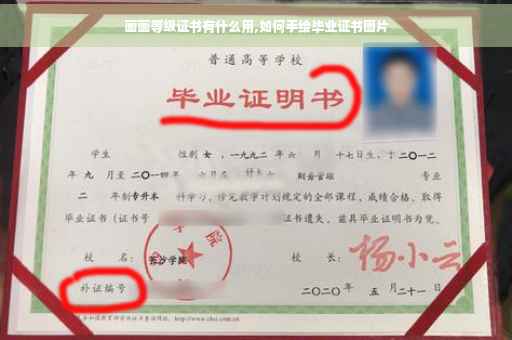 画画等级证书有什么用,如何手绘毕业证书图片
普通高等学校
毕业证明书
学生 性别 女，一九九二年 六 月 十七日生，于 二〇一二
年 九 月至 二〇一四 年 六月在 财务管理 专业
二 年制 专升本 科学习，修完教学计划规定的全部课程，成绩合格，取得
毕业证书（证书号 证书遗失，兹具毕业证明书为凭。
校 名： 长沙学院 校 长： 杨小云
补证编号 二〇二〇年 五 月 二十一 日
http://www.chsi.com.cn